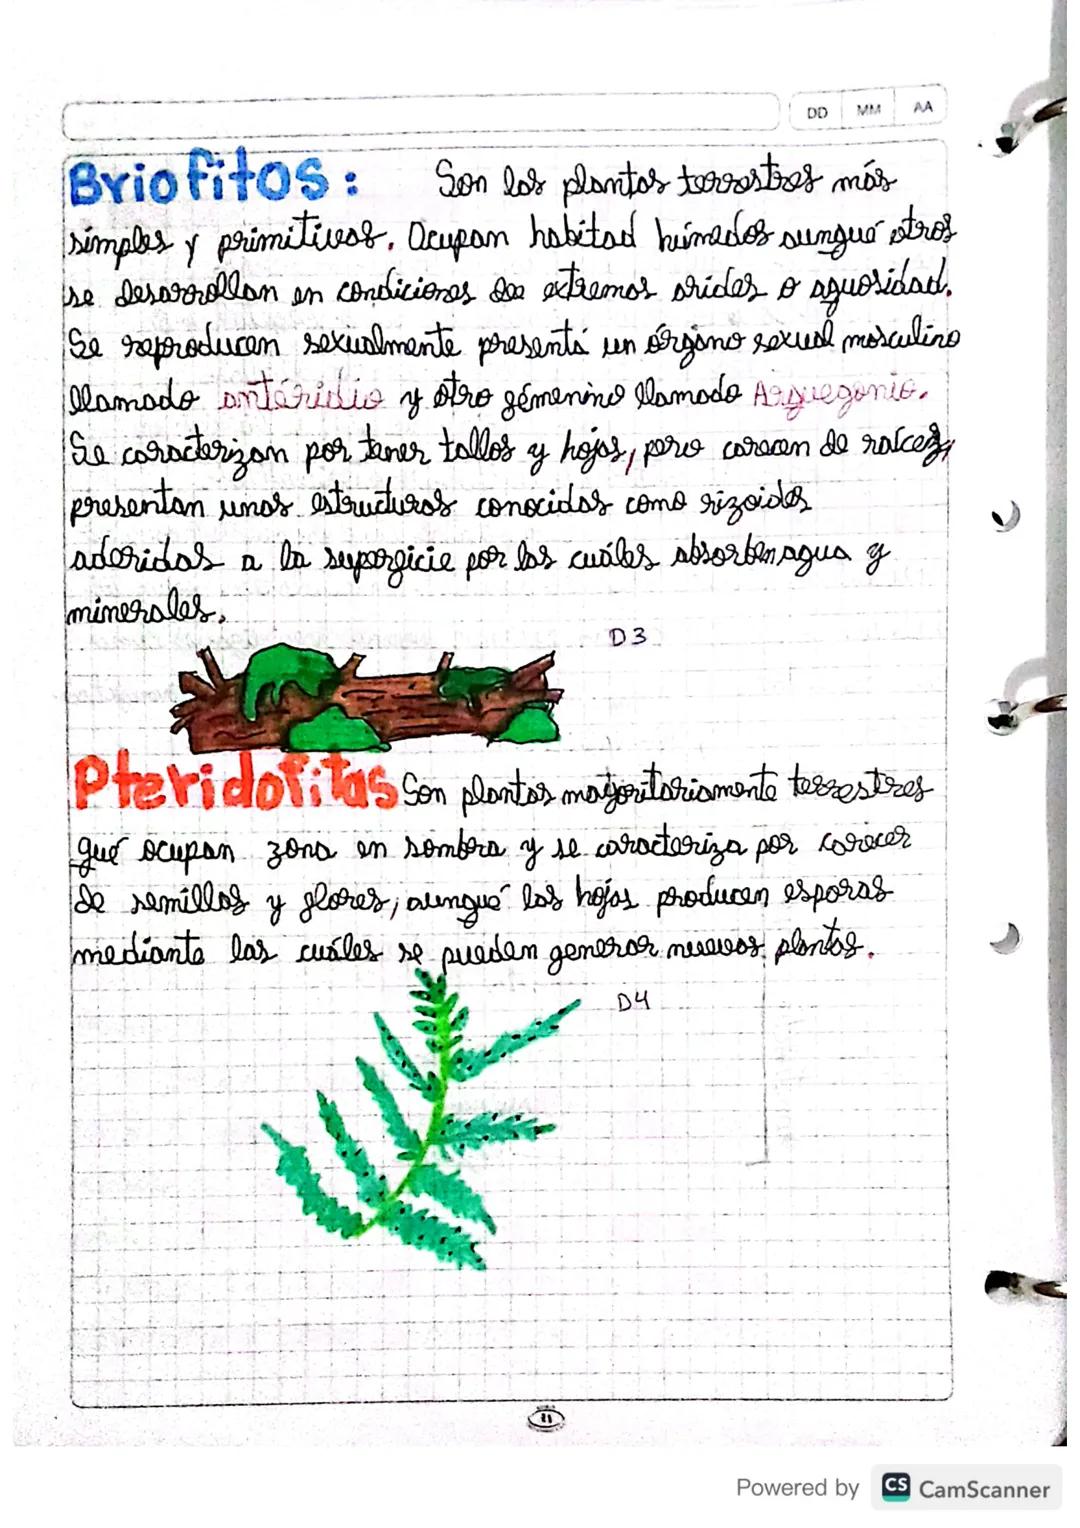 DD MM AA
Briofitos: Son las plantas terrestres más
simples y primitivas. Ocupan habitad húmedos aunqué otros
se desarrollan en condiciones dee extremas arides o aguosidad.
Se reproducen sexualmente presentá un órgano sexual masculino
llamado antéridio y otro fémenino llamado Arquegonio.
Se caracterizan por tener tallos y hojas, pero carecen de raíces,
presentan unas estructuras conocidas como rizoides
aderidas a la superficie por las cuáles absorben agua y
minerales.
D3
Pteridofitas Son plantas mayoritariamente terrestres
qué ocupan zona en sombra y se caracteriza por carecer
de semillas y flores, aunqué las hojas producen esporas
mediante las cuáles se pueden generar nuevas plantas.
D4
Powered by CS CamScanner